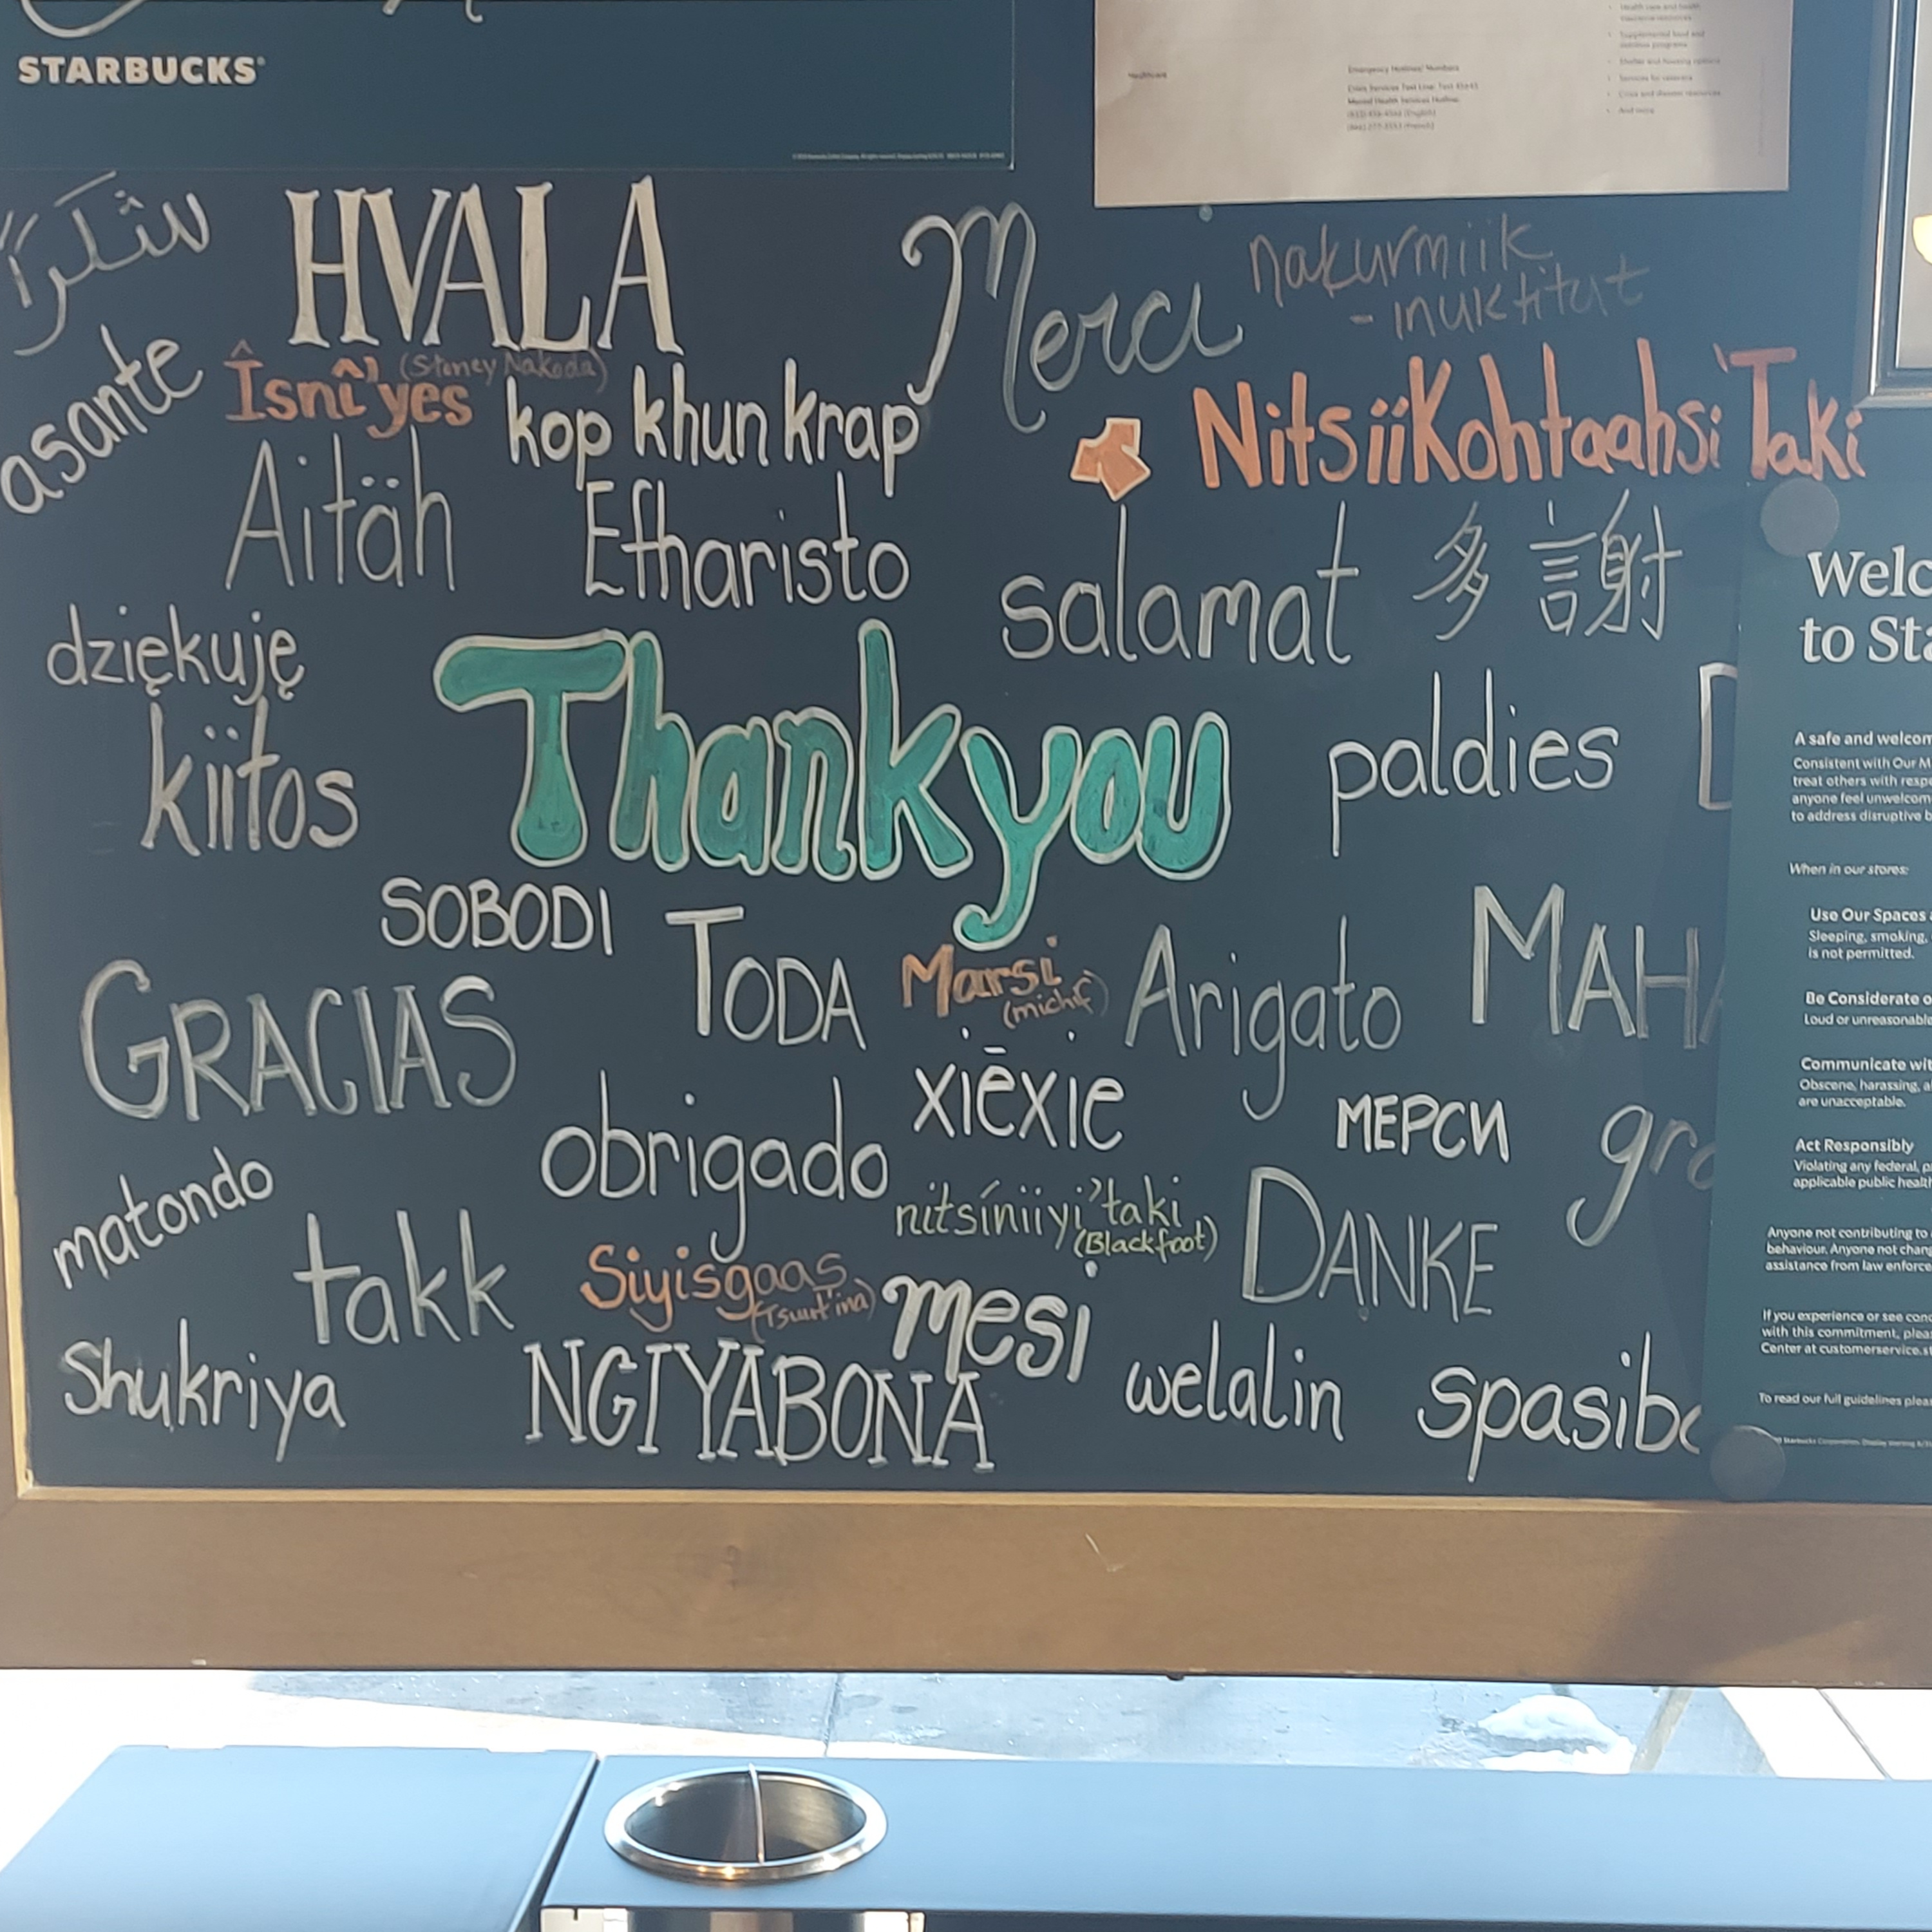 STARBUCKS
Healthcare
Emergency Hotlines/ Numbers
And more
شكراً
HVALA
Merci
nakurmiik
- inuktitut
asante
Îsnî'yes
(Stoney Nakoda)
kop khun krap
NitsiiKohtaahsi'Taki
Aitäh
Efharisto
salamat
多謝
dziękuję
Thank you
kiitos
paldies
D
SOBODI
TODA
Marsi
(michif)
Arigato
MAHA
GRACIAS
xiēxie
МЕРСИ
gra
obrigado
matondo
nitsíniiyi'taki
(Blackfoot)
DANKE
takk
Siyisgaas
mesi
Shukriya
NGIYABONA
welalin
spasibo
Welc
to Sta
A safe and welcom
Consistent with Our M
treat others with respe
anyone feel unwelcom
to address disruptive b
When in our stores:
Use Our Spaces
Sleeping, smoking,
is not permitted.
Be Considerate o
Loud or unreasonable
Communicate wit
Obscene, harassing, a
are unacceptable.
Act Responsibly
Violating any federal, p
applicable public healt
Anyone not contributing to
behaviour. Anyone not chang
assistance from law enforce
If you experience or see conc
with this commitment, pleas
Center at customerservice.st
To read our full guidelines pleas